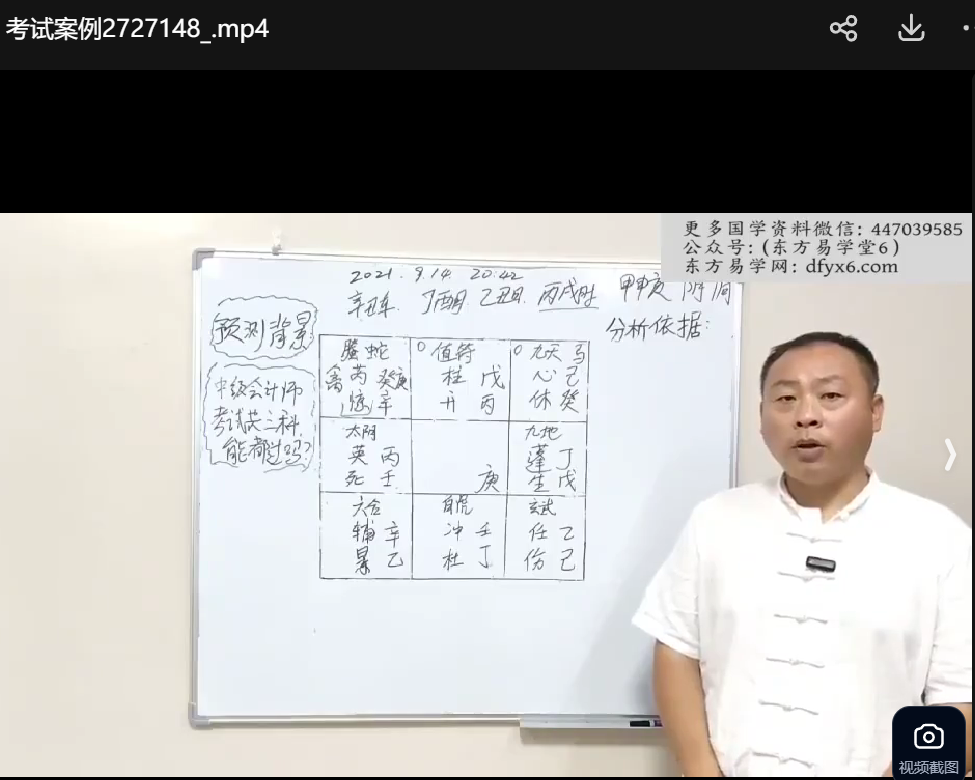 考试案例2727148_.mp4
更多国学资料微信：447039585
公众号：（东方易学堂6）
东方易学网：dfyx6.com
2021.9.14 20:42
辛丑年 丁酉月 乙丑日 丙戌时
分析依据：
预测背景
中级会计师
考试共三科
能都过吗？
螣蛇
禽芮 癸庚
惊 辛
值符
柱 戊
丙
九天 马
心 己
休 癸
太阴
英 丙
死 壬
庚
九地
蓬 丁
生 戊
六合
辅 辛
景 乙
白虎
冲 壬
杜 丁
玄武
任 乙
伤 己
视频截图